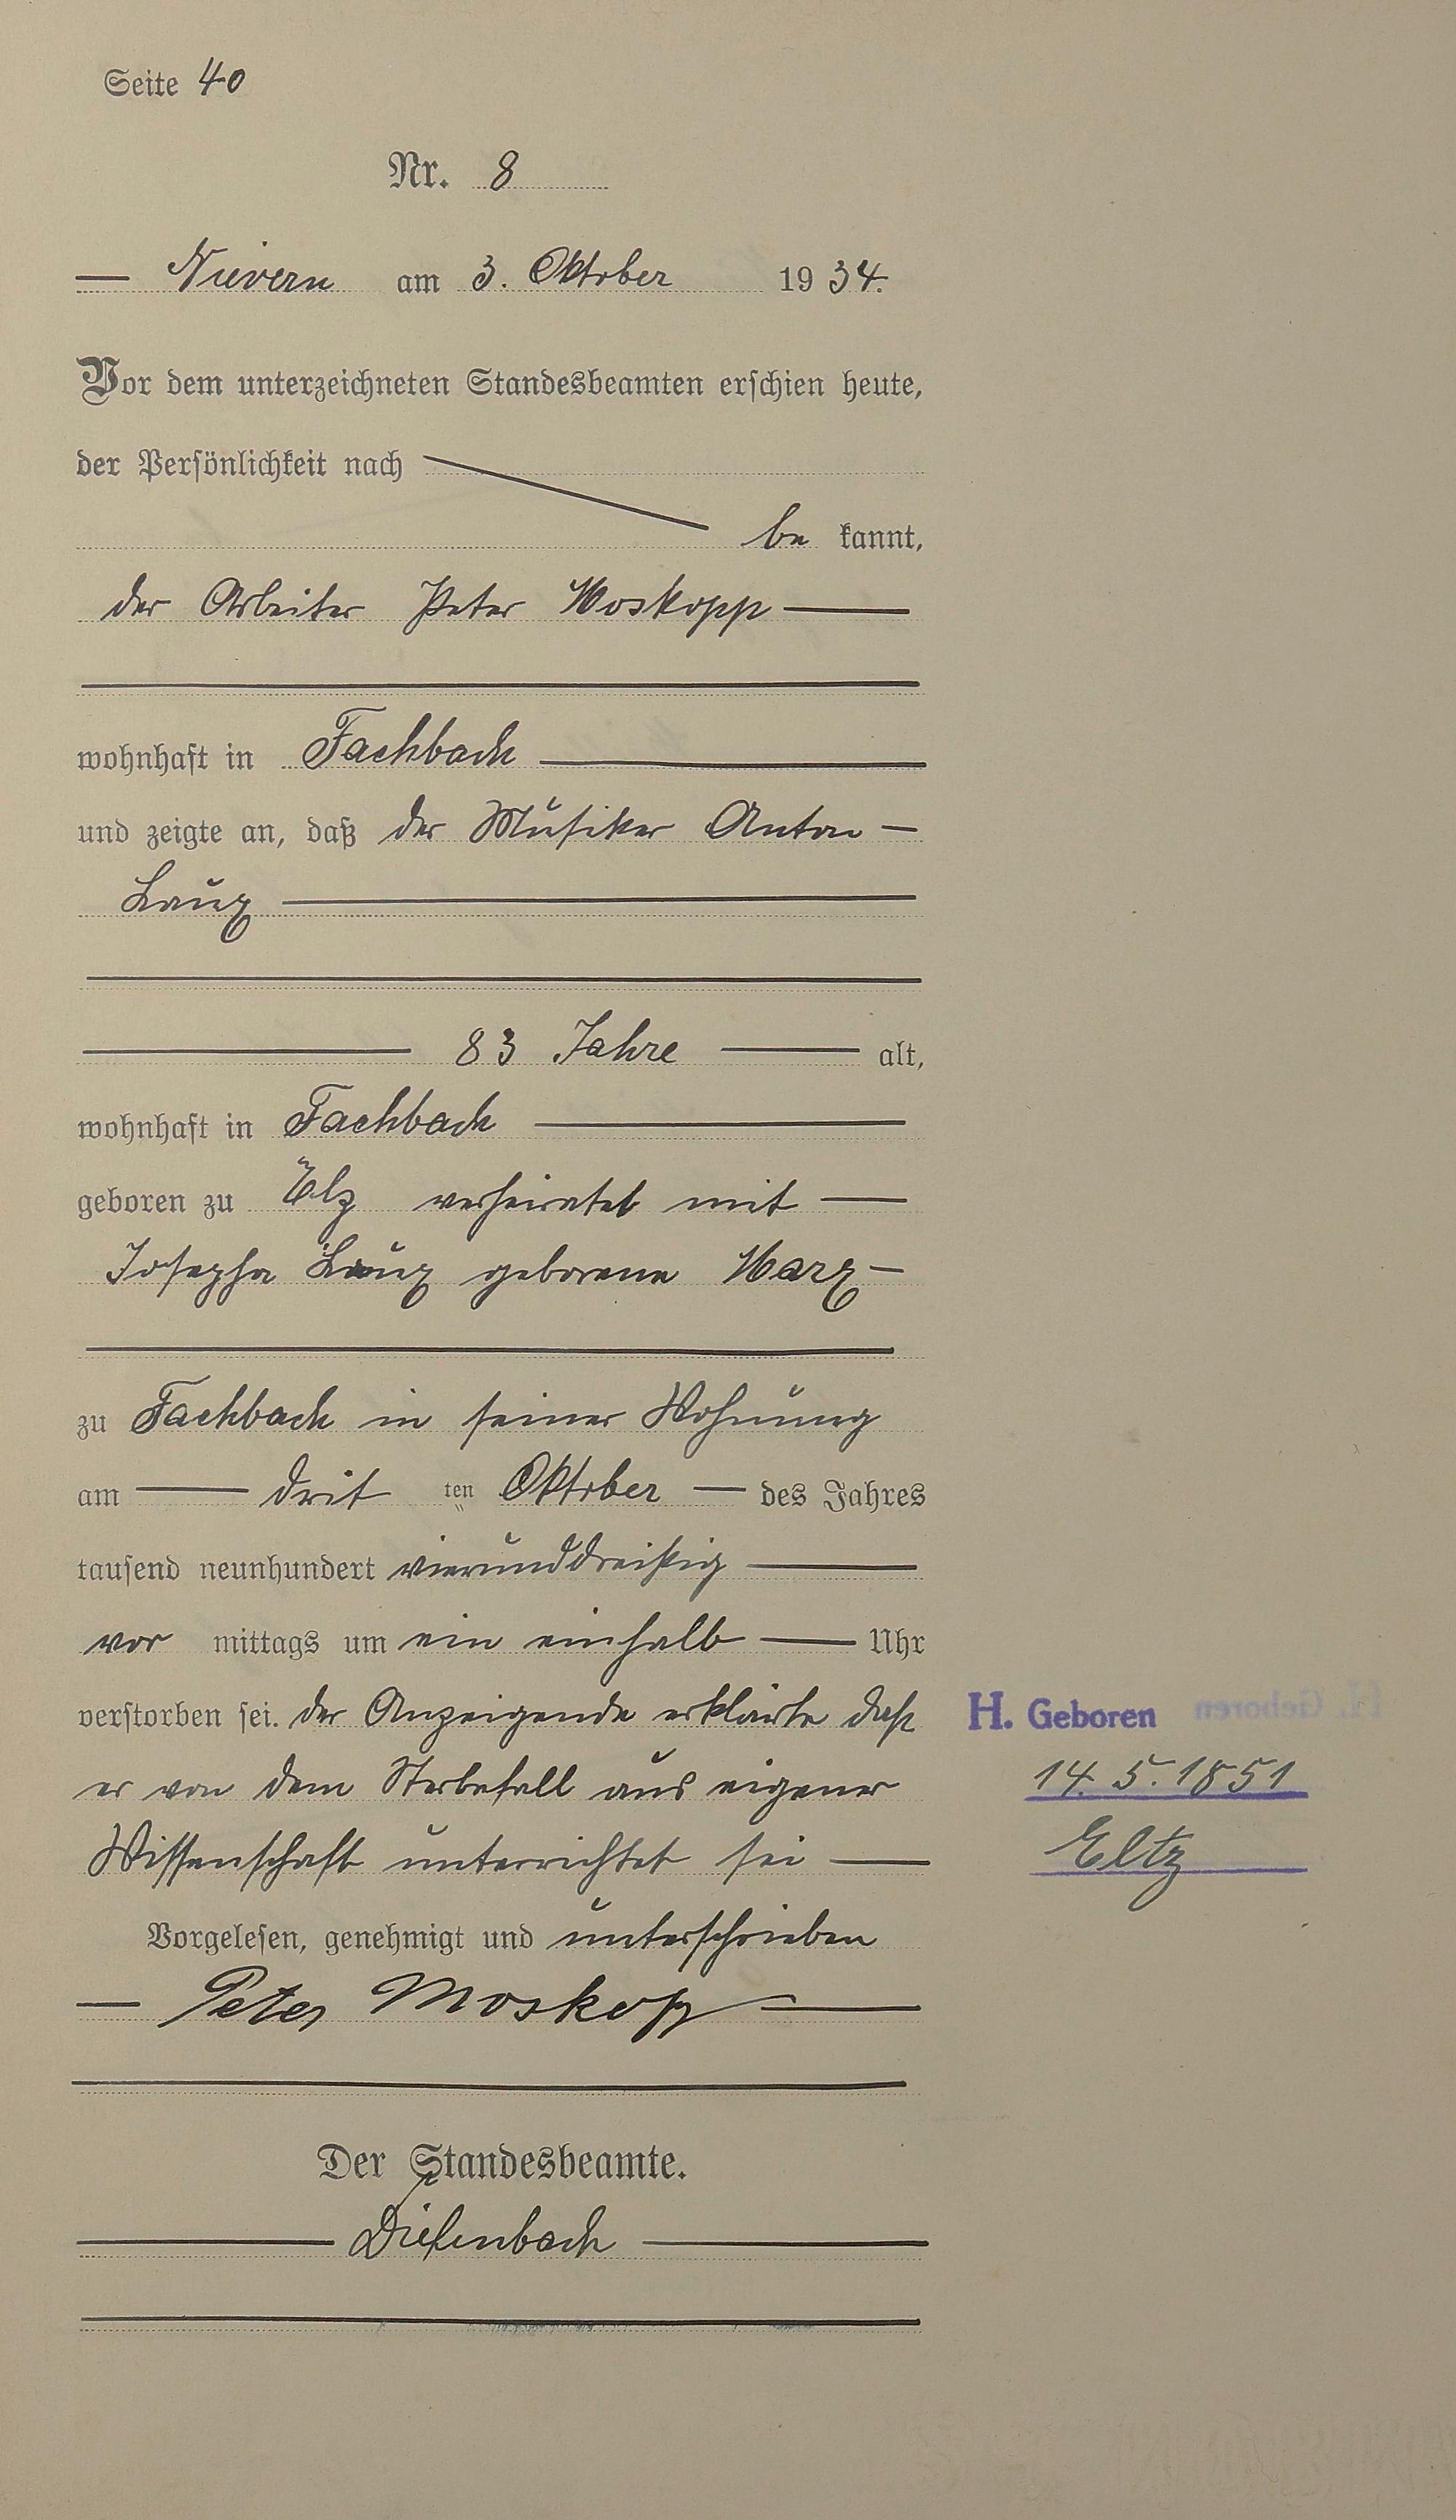 Seite 40
Nr. 8
— Nievern am 3. Oktober 1934.
Vor dem unterzeichneten Standesbeamten erschien heute,
der Persönlichkeit nach
be kannt,
der Arbeiter Peter Moskopp —
wohnhaft in Fachbach —
und zeigte an, daß der Musiker Anton —
Laux —
— 83 Jahre — alt,
wohnhaft in Fachbach —
geboren zu Elz verheiratet mit —
Josepha Laux geborene Marx —
zu Fachbach in seiner Wohnung
am — drit ten Oktober — des Jahres
tausend neunhundert vierunddreißig —
vor mittags um ein einhalb — Uhr
verstorben sei. der Anzeigende erklärte daß
er von dem Sterbefall aus eigener
Wissenschaft unterrichtet sei —
Vorgelesen, genehmigt und unterschrieben
— Peter Moskopp —
Der Standesbeamte.
— Diefenbach —
H. Geboren
14. 5. 1851
Eltz